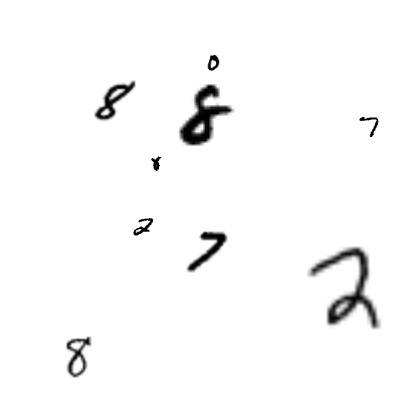 0
8 8
7
8
2
7
2
8